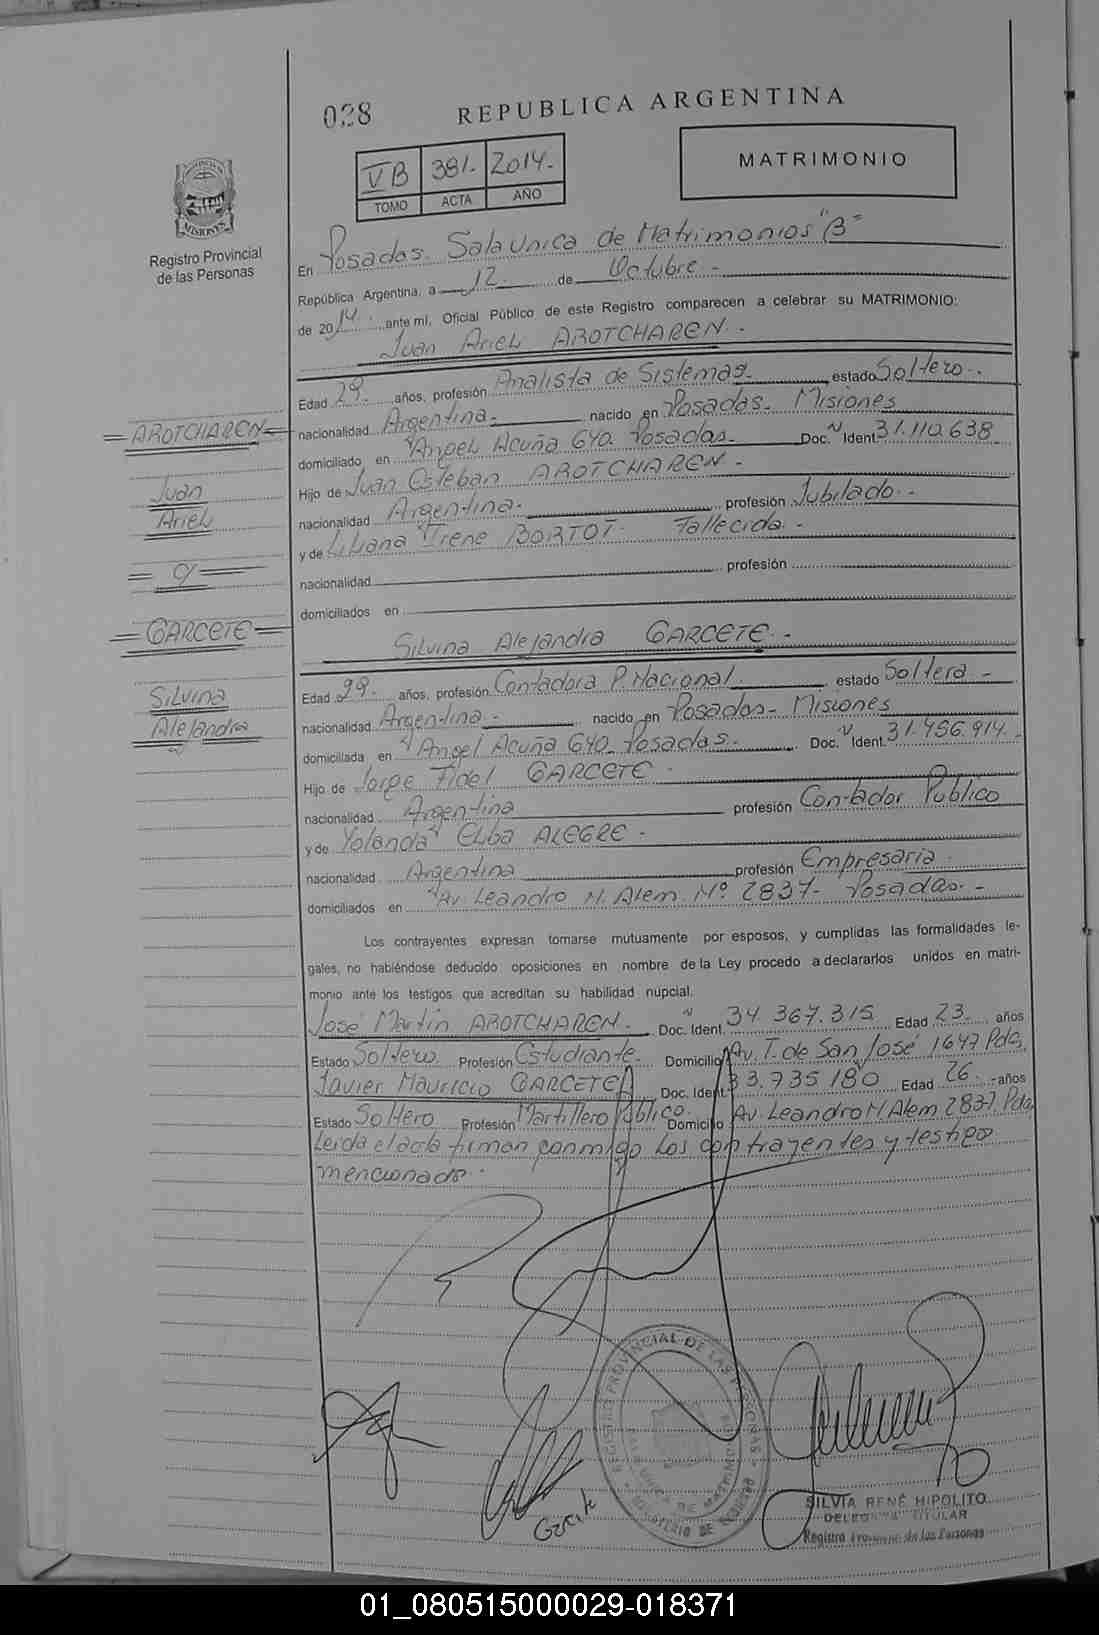 028 REPUBLICA ARGENTINA
VB 381. 2014.
TOMO ACTA AÑO
MATRIMONIO
PROVINCIA DE
MISIONES
Registro Provincial
de las Personas
En Posadas. Sala Unica de Matrimonios "B"
República Argentina, a 12. de Octubre -
de 2014. ante mí, Oficial Público de este Registro comparecen a celebrar su MATRIMONIO:
Juan Ariel AROTCHAREN. -
Edad 29. años, profesión Analista de Sistemas. estado Soltero. -
nacionalidad Argentina. nacido en Posadas. Misiones
domiciliado en Angel Acuña 640. Posadas. Doc. N Ident. 31.110.638
Hijo de Juan Esteban AROTCHAREN. -
nacionalidad Argentina. profesión Jubilado. -
y de Liliana Irene BORTOT. Fallecida. -
nacionalidad profesión
domiciliados en
Silvina Alejandra GARCETE. -
Edad 29. años, profesión Contadora P. Nacional estado Soltera -
nacionalidad Argentina - nacido en Posadas - Misiones
domiciliada en Angel Acuña 640. Posadas. Doc. N Ident. 31.456.914.
Hijo de Jorge Fidel GARCETE -
nacionalidad Argentina profesión Contador Publico
y de Yolanda Elba ALEGRE -
nacionalidad Argentina profesión Empresaria
domiciliados en Av. Leandro N. Alem Nº 2837- Posadas. -
Los contrayentes expresan tomarse mutuamente por esposos, y cumplidas las formalidades le-
gales, no habiéndose deducido oposiciones en nombre de la Ley procedo a declararlos unidos en matri-
monio ante los testigos que acreditan su habilidad nupcial.
José Martín AROTCHAREN. Doc. N Ident. 34.367.315 Edad 23. años
Estado Soltero Profesión Estudiante. Domicilio Av. T. de San José 1647 Pdas,
Javier Mauricio GARCETE Doc. Ident. 33.735.180 Edad 26. -años
Estado Soltero Profesión Martillero Público. Domicilio Av. Leandro N Alem 2837. Pdas,
Leída el acta firman conmigo los contrayentes y testigo
mencionado.
AROTCHAREN
Juan
Ariel
y
GARCETE
Silvina
Alejandra
REGISTRO PROVINCIAL DE LAS PERSONAS
SALA UNICA DE MATRIMONIOS
MINISTERIO DE GOBIERNO
Garcete
SILVIA RENÉ HIPOLITO
DELEGADA TITULAR
Registro Provincial de las Personas
01_080515000029-018371